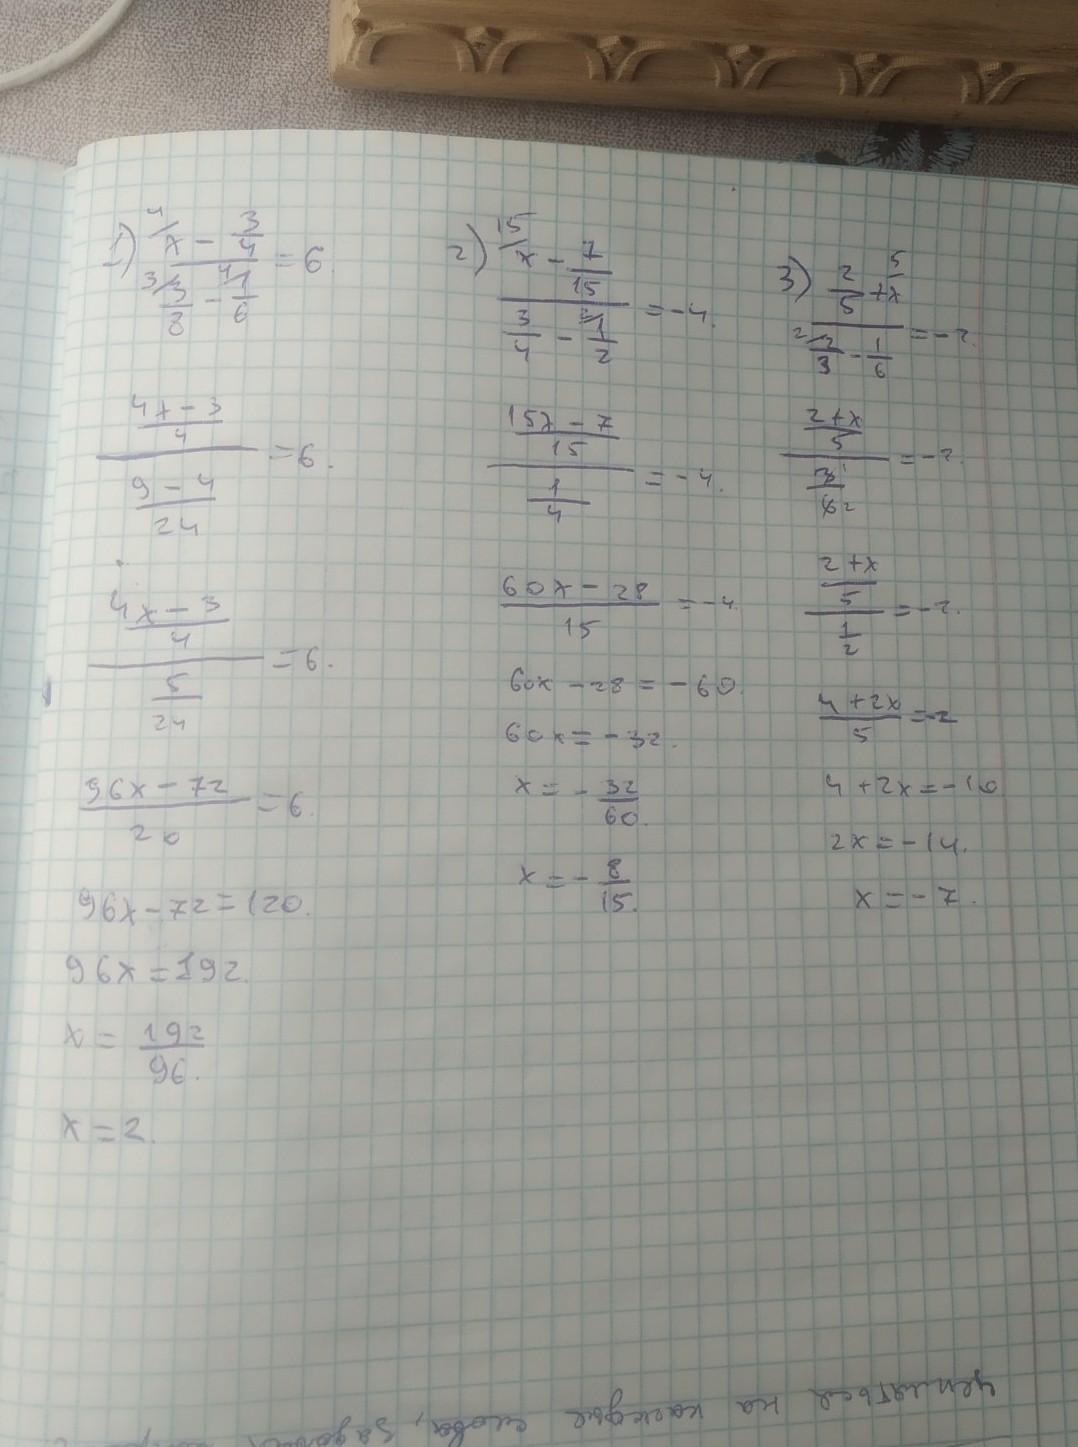 1) (⁴/x - 3/4) / (³/3/8 - ⁴/1/6) = 6.
((4x - 3)/4) / ((9 - 4)/24) = 6.
((4x - 3)/4) / (5/24) = 6.
(96x - 72)/20 = 6.
96x - 72 = 120.
96x = 192.
x = 192/96.
x = 2.
2) (¹⁵/x - 7/15) / (3/4 - ²/1/2) = -4.
((15x - 7)/15) / (1/4) = -4.
(60x - 28)/15 = -4.
60x - 28 = -60.
60x = -32.
x = -32/60.
x = -8/15.
3) (2/5 + ⁵/x) / (²/2/3 - 1/6) = -2.
((2+x)/5) / (3¹/6 2) = -2.
((2+x)/5) / (1/2) = -2.
(4+2x)/5 = -2
4 + 2x = -10
2x = -14.
x = -7.
цепляться на каждые слова,